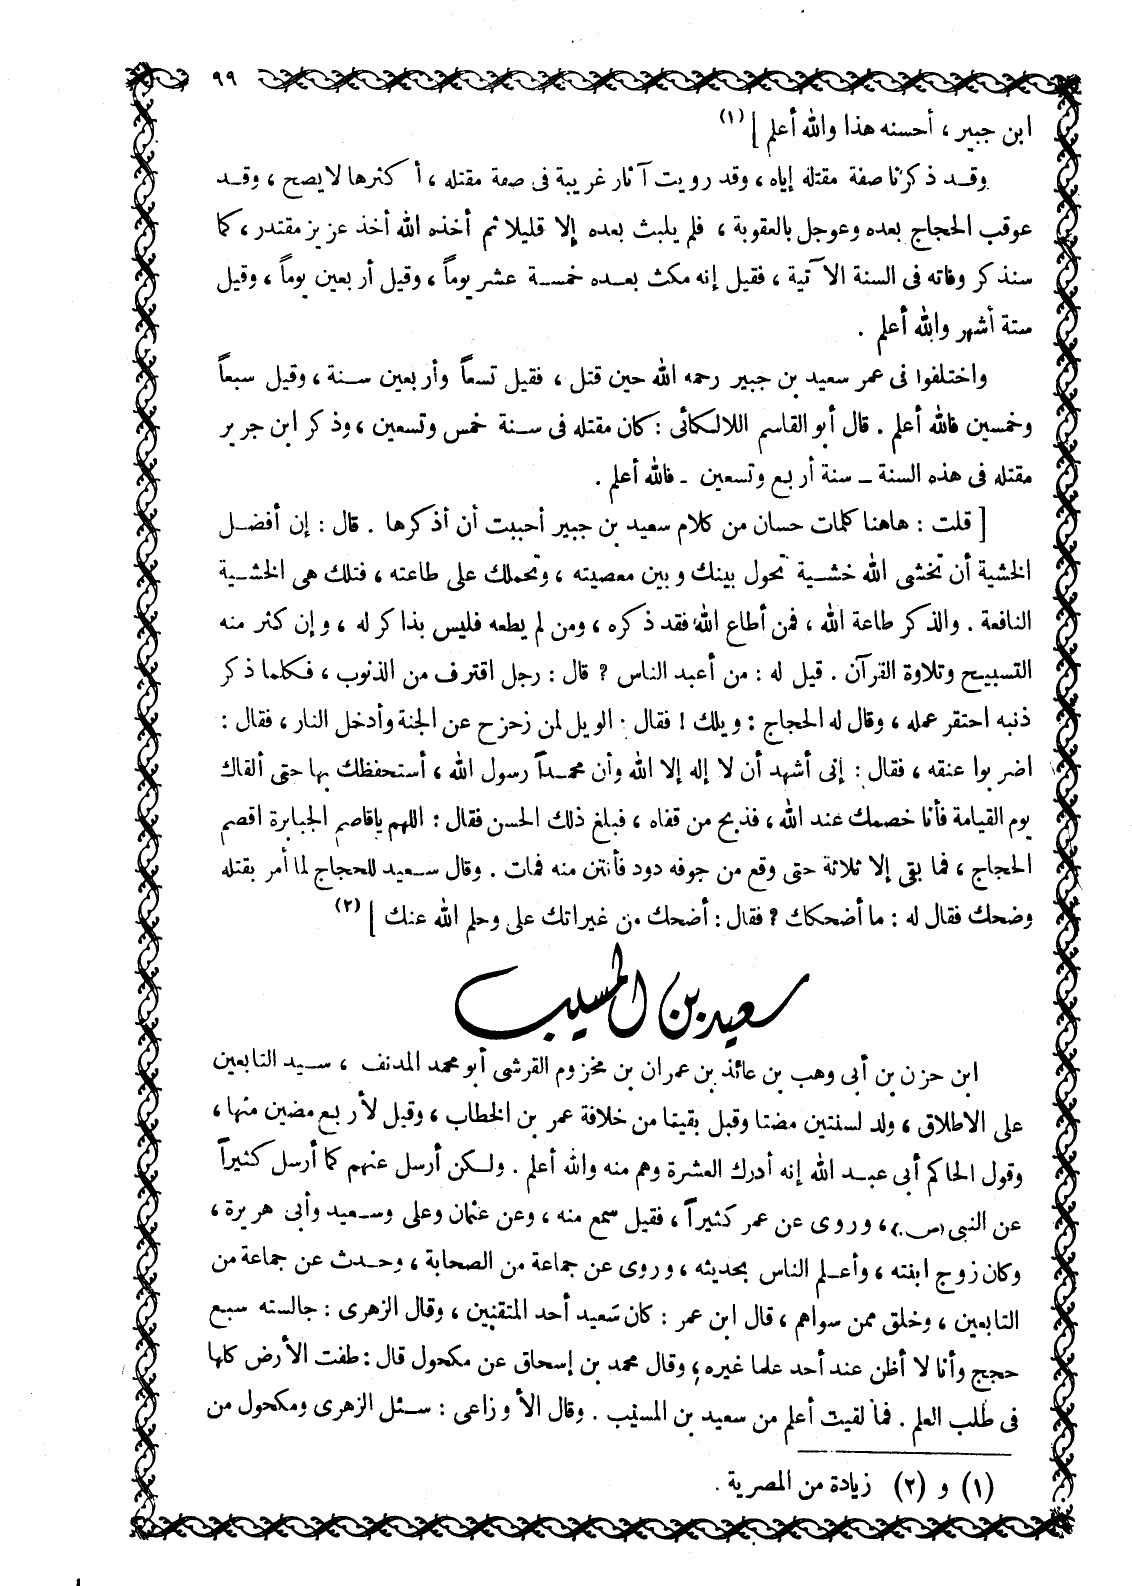 ٩٩
ابن جبير ، أحسنه هذا والله أعلم ](١)
وقد ذكرنا صفة مقتله إياه ، وقد رويت آثار غريبة فى صفة مقتله ، أكثرها لايصح ، وقد
عوقب الحجاج بعده وعوجل بالعقوبة ، فلم يلبث بعده إلا قليلا ثم أخذه الله أخذ عزيز مقتدر ، كما
سنذكر وفاته فى السنة الآتية ، فقيل إنه مكث بعده خمسة عشر يوماً ، وقيل أربعين يوماً ، وقيل
ستة أشهر والله أعلم .
واختلفوا فى عمر سعيد بن جبير رحمه الله حين قتل ، فقيل تسعاً وأربعين سنة ، وقيل سبعاً
وخمسين فالله أعلم . قال أبو القاسم اللالكائى : كان مقتله فى سنة خمس وتسعين ، وذكر ابن جرير
مقتله فى هذه السنة ـ سنة أربع وتسعين ـ فالله أعلم .
[ قلت : هاهنا كلمات حسان من كلام سعيد بن جبير أحببت أن أذكرها . قال : إن أفضل
الخشية أن تخشى الله خشية تحول بينك وبين معصيته ، وتحملك على طاعته ، فتلك هى الخشية
النافعة . والذكر طاعة الله ، فمن أطاع الله فقد ذكره ، ومن لم يطعه فليس بذاكر له ، وإن كثر منه
التسبيح وتلاوة القرآن . قيل له : من أعبد الناس ? قال : رجل اقترف من الذنوب ، فكلما ذكر
ذنبه احتقر عمله ، وقال له الحجاج : ويلك ! فقال : الويل لمن زحزح عن الجنة وأدخل النار ، فقال :
اضربوا عنقه ، فقال : إنى أشهد أن لا إله إلا الله وأن محمداً رسول الله ، أستحفظك بها حتى ألقاك
يوم القيامة فأنا خصمك عند الله ، فذبح من قفاه ، فبلغ ذلك الحسن فقال : اللهم ياقاصم الجبابرة اقصم
الحجاج ، فما بقى إلا ثلاثة حتى وقع من جوفه دود فأنتن منه فمات . وقال سعيد للحجاج لما أمر بقتله
وضحك فقال له : ما أضحكك ? فقال : أضحك من غيراتك على وحلم الله عنك ](٢)
سعيد بن المسيب
ابن حزن بن أبى وهب بن عائذ بن عمران بن مخزوم القرشى أبو محمد المدنف ، سيد التابعين
على الاطلاق ، ولد لسنتين مضتا وقيل بقيتا من خلافة عمر بن الخطاب ، وقيل لأربع مضين منها ،
وقول الحاكم أبى عبد الله إنه أدرك العشرة وهم منه والله أعلم . ولكن أرسل عنهم كما أرسل كثيراً
عن النبى (ص) ، وروى عن عمر كثيراً ، فقيل سمع منه ، وعن عثمان وعلى وسعيد وأبى هريرة ،
وكان زوج ابنته ، وأعلم الناس بحديثه ، وروى عن جماعة من الصحابة ، وحدث عن جماعة من
التابعين ، وخلق ممن سواهم ، قال ابن عمر : كان سعيد أحد المتقنين ، وقال الزهرى : جالسته سبع
حجج وأنا لا أظن عند أحد علما غيره ، وقال محمد بن إسحاق عن مكحول قال : طفت الأرض كلها
فى طلب العلم . فما لقيت أعلم من سعيد بن المسيب . وقال الأوزاعى : سئل الزهرى ومكحول من
(١) و (٢) زيادة من المصرية .